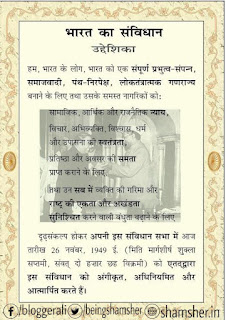 भारत का संविधान
उद्देशिका
हम, भारत के लोग, भारत को एक संपूर्ण प्रभुत्व-संपन्न,
समाजवादी, पंथ-निरपेक्ष, लोकतंत्रात्मक गणराज्य
बनाने के लिए तथा उसके समस्त नागरिकों को:
सामाजिक, आर्थिक और राजनैतिक न्याय,
विचार, अभिव्यक्ति, विश्वास, धर्म
और उपासना की स्वतंत्रता,
प्रतिष्ठा और अवसर की समता
प्राप्त कराने के लिए,
तथा उन सब में व्यक्ति की गरिमा और
राष्ट्र की एकता और अखंडता
सुनिश्चित करने वाली बंधुता बढ़ाने के लिए
दृढ़संकल्प होकर अपनी इस संविधान सभा में आज
तारीख 26 नवंबर, 1949 ई. (मिति मार्गशीर्ष शुक्ला
सप्तमी, संवत् दो हजार छह विक्रमी) को एतद्द्वारा
इस संविधान को अंगीकृत, अधिनियमित और
आत्मार्पित करते हैं।
/bloggerali /beingshamsher shamsher.in